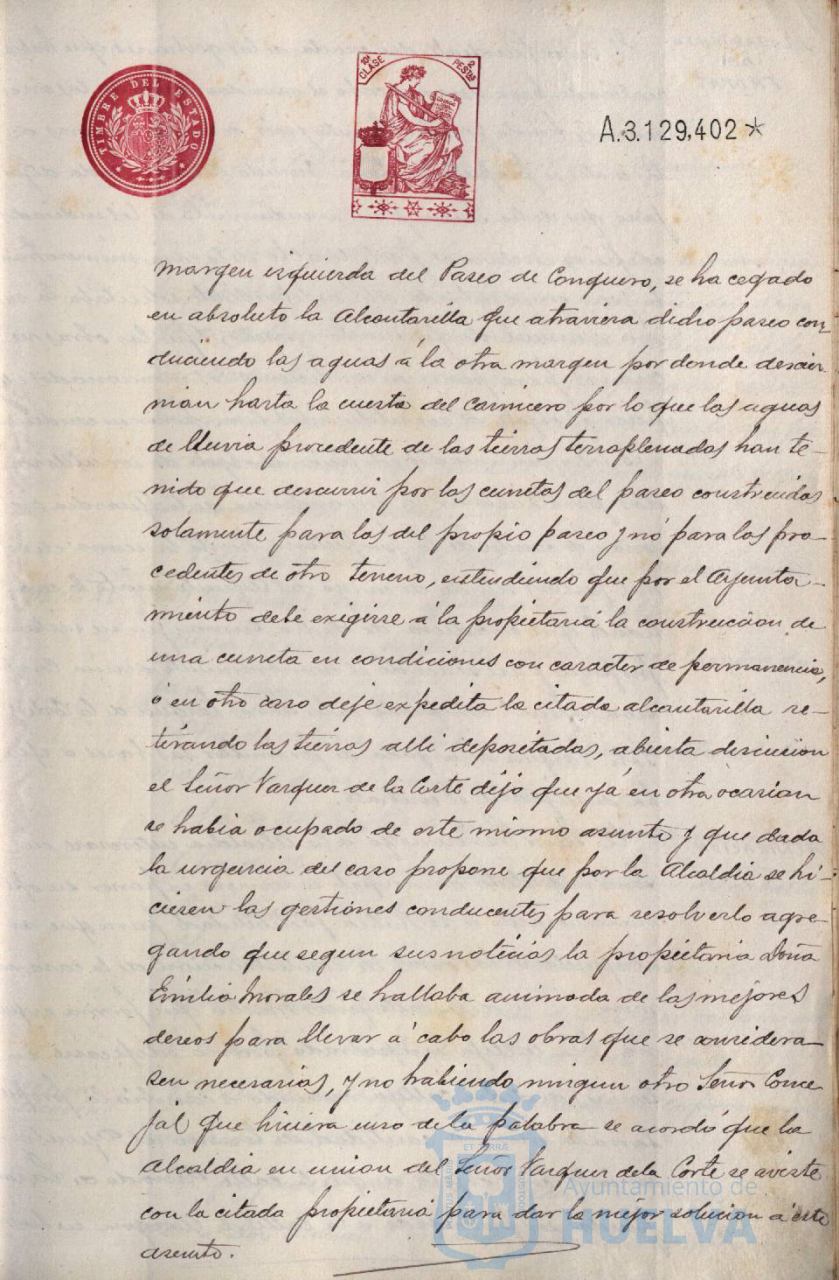 TIMBRE DEL ESTADO
10ª CLASE 2 PESTAS
A.3.129,402 *
margen izquierda del Paseo de Conquero, se ha cegado
en absoluto la Alcantarilla que atraviesa dicho paseo con_
duciendo las aguas á la otra margen por donde discur-
rian hasta la cuesta del Carnicero por lo que las aguas
de lluvia procedente de las tierras terraplenadas han te-
nido que descurrir por las cunetas del paseo construidas
solamente para las del propio paseo y nó para las pro-
cedentes de otro terreno, entendiendo que por el Ayunta-
miento debe exigirse á la propietaria la construccion de
una cuneta en condiciones con caracter de permanencia,
ó en otro caso deje expedita la citada alcantarilla re-
tirando las tierras alli depositadas, abierta discucion
el Señor Vazquez de la Corte dijo que yá en otra ocasion
se habia ocupado de este mismo asunto y que dada
la urgencia del caso propone que por la Alcaldia se hi-
ciesen las gestiones conducentes para resolverlo agre
gando que segun sus noticias la propietaria Doña
Emilia Morales se hallaba animada de las mejores
deseos para llevar á cabo las obras que se considera-
sen necesarias, y no habiendo ningun otro Señor Conce
jal que hiciera uso de la palabra se acordó que la
Alcaldia en union del Señor Vazquez de la Corte se aviste
con la citada propietaria para dar la mejor solucion á éste
asunto.
Ayuntamiento de
HUELVA